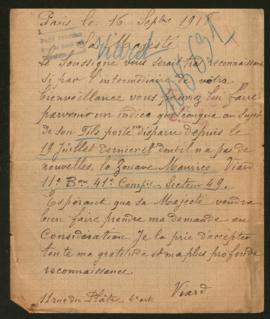 Paris le 16 Septbre 191
Sa Majesté
Le soussigné vous serait très reconnaissant
si par l'intermédiaire de votre
bienveillance vous pouviez lui faire
parvenir un indice quelconque au sujet
de son Fils porté disparu depuis le
19 Juillet dernier et dont il n'a pas de
nouvelles, le Zouave Maurice Viard
11e Bon 41e Compie - Secteur 49.
Espérant que Sa Majesté voudra
bien faire prendre ma demande en
Considération Je la prie d'accepter
toute ma gratitude et ma plus profonde
reconnaissance.
Viard
11 rue du Plâtre 4e art